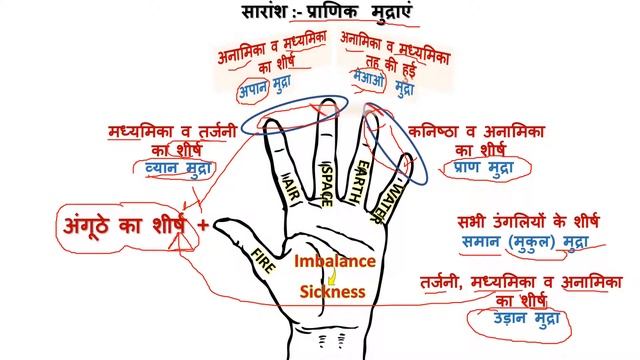 सारांश :- प्राणिक मुद्राएं
अनामिका व मध्यमिका
का शीर्ष
अपान मुद्रा
अनामिका व मध्यमिका
तह की हुई
मेआओ मुद्रा
मध्यमिका व तर्जनी
का शीर्ष
व्यान मुद्रा
कनिष्ठा व अनामिका
का शीर्ष
प्राण मुद्रा
अंगूठे का शीर्ष +
AIR
SPACE
EARTH
WATER
FIRE
Imbalance
Sickness
सभी उंगलियों के शीर्ष
समान (मुकुल) मुद्रा
तर्जनी, मध्यमिका व अनामिका
का शीर्ष
उड़ान मुद्रा